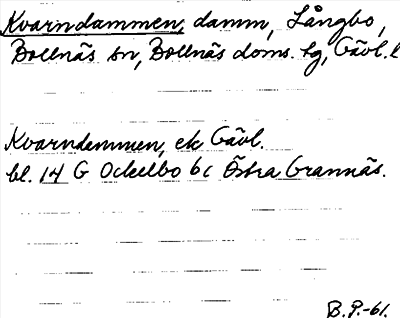 Kvarndammen, damm, Långbo,
Bollnäs sn, Bollnäs doms. tg, Gävl. l
Kvarndammen, ek Gävl.
bl. 14 G Ockelbo 6c Östra Grannäs.
B.P.-61.